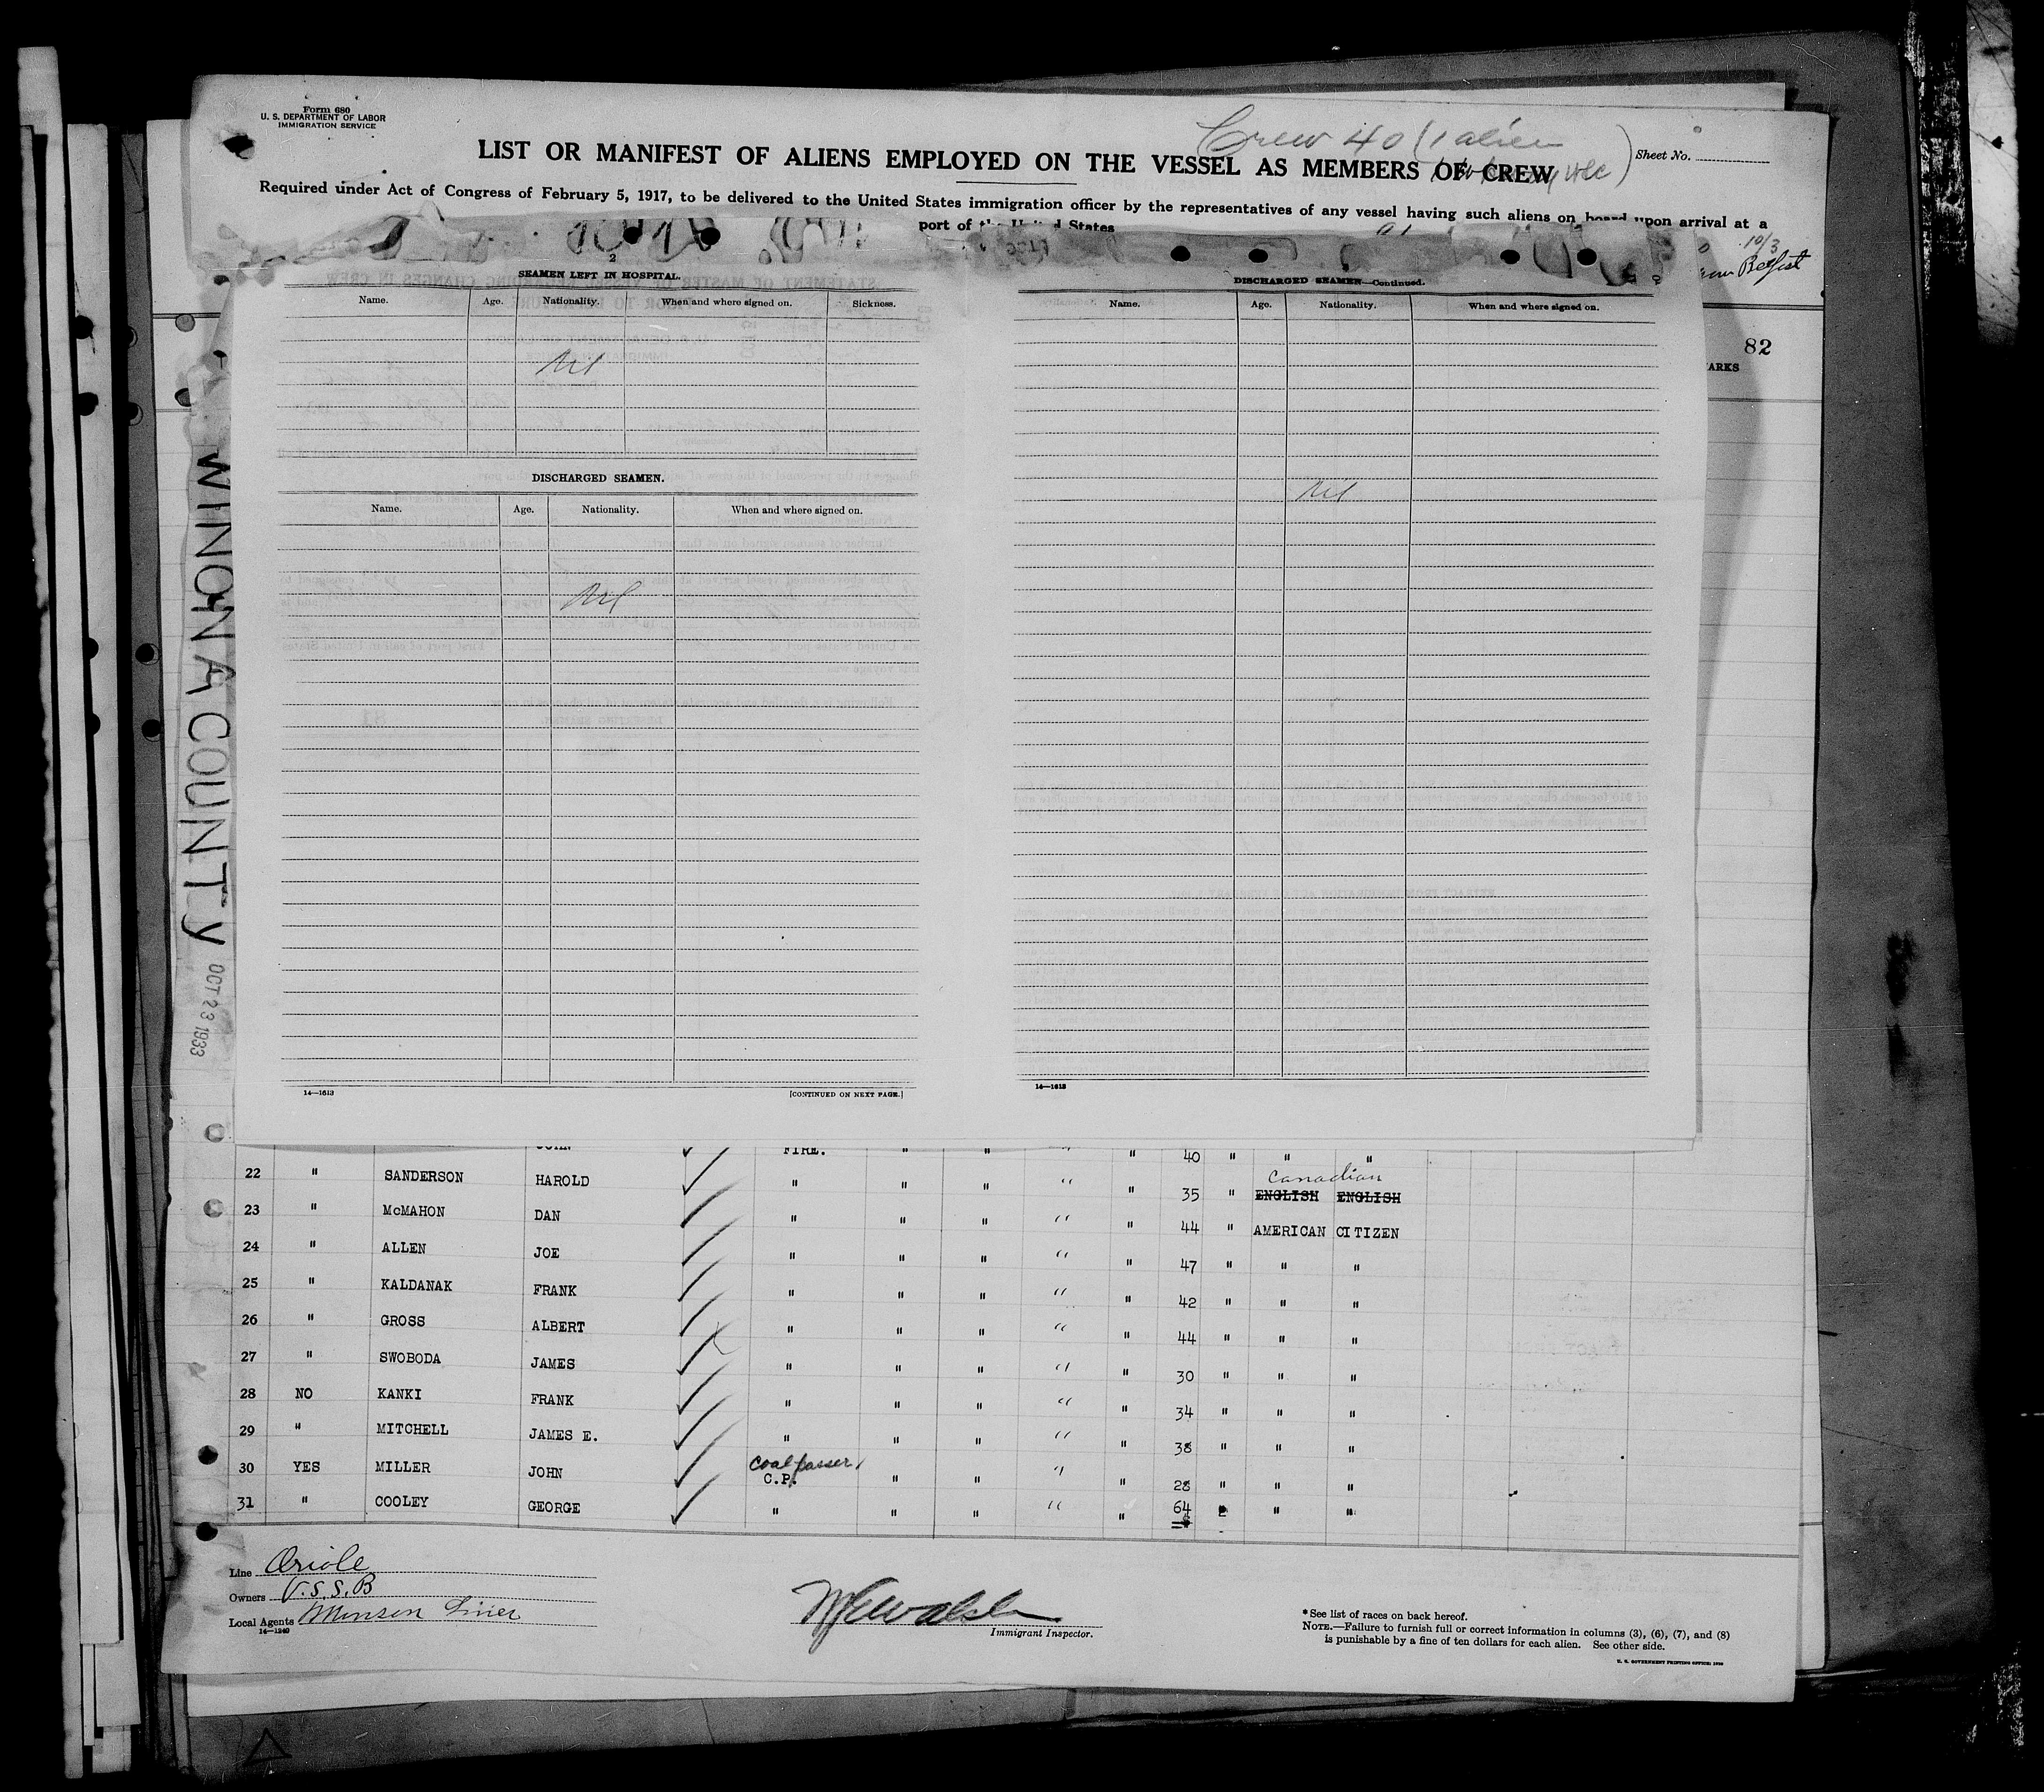 Form 680
U. S. DEPARTMENT OF LABOR
IMMIGRATION SERVICE
Crew 40 (1 alien
Sheet No.
LIST OR MANIFEST OF ALIENS EMPLOYED ON THE VESSEL AS MEMBERS OF CREW
Required under Act of Congress of February 5, 1917, to be delivered to the United States immigration officer by the representatives of any vessel having such aliens on board upon arrival at a
port of the United States
10/3
Belfast
82
ARKS
WINONA COUNTY OCT 23 1933
2
SEAMEN LEFT IN HOSPITAL.
Name. Age. Nationality. When and where signed on. Sickness.
Nil
DISCHARGED SEAMEN.
Name. Age. Nationality. When and where signed on.
Nil
14—1613 [CONTINUED ON NEXT PAGE.]
DISCHARGED SEAMEN—Continued.
Name. Age. Nationality. When and where signed on.
Nil
14—1613
JOHN FIRE. " " " " 40 " " "
22 " SANDERSON HAROLD " " " " " 35 " Canadian ENGLISH ENGLISH
23 " McMAHON DAN " " " " " 44 " AMERICAN CITIZEN
24 " ALLEN JOE " " " " " 47 " " "
25 " KALDANAK FRANK " " " " " 42 " " "
26 " GROSS ALBERT " " " " " 44 " " "
27 " SWOBODA JAMES " " " " " 30 " " "
28 NO KANKI FRANK " " " " " 34 " " "
29 " MITCHELL JAMES E. " " " " " 38 " " "
30 YES MILLER JOHN Coal passer C.P. " " " " 28 " " "
31 " COOLEY GEORGE " " " " " 64 " " "
Line Oriole
Owners U.S.S.B
Local Agents Munson Liner
14—1240
Immigrant Inspector.
* See list of races on back hereof.
NOTE.—Failure to furnish full or correct information in columns (3), (6), (7), and (8)
is punishable by a fine of ten dollars for each alien. See other side.